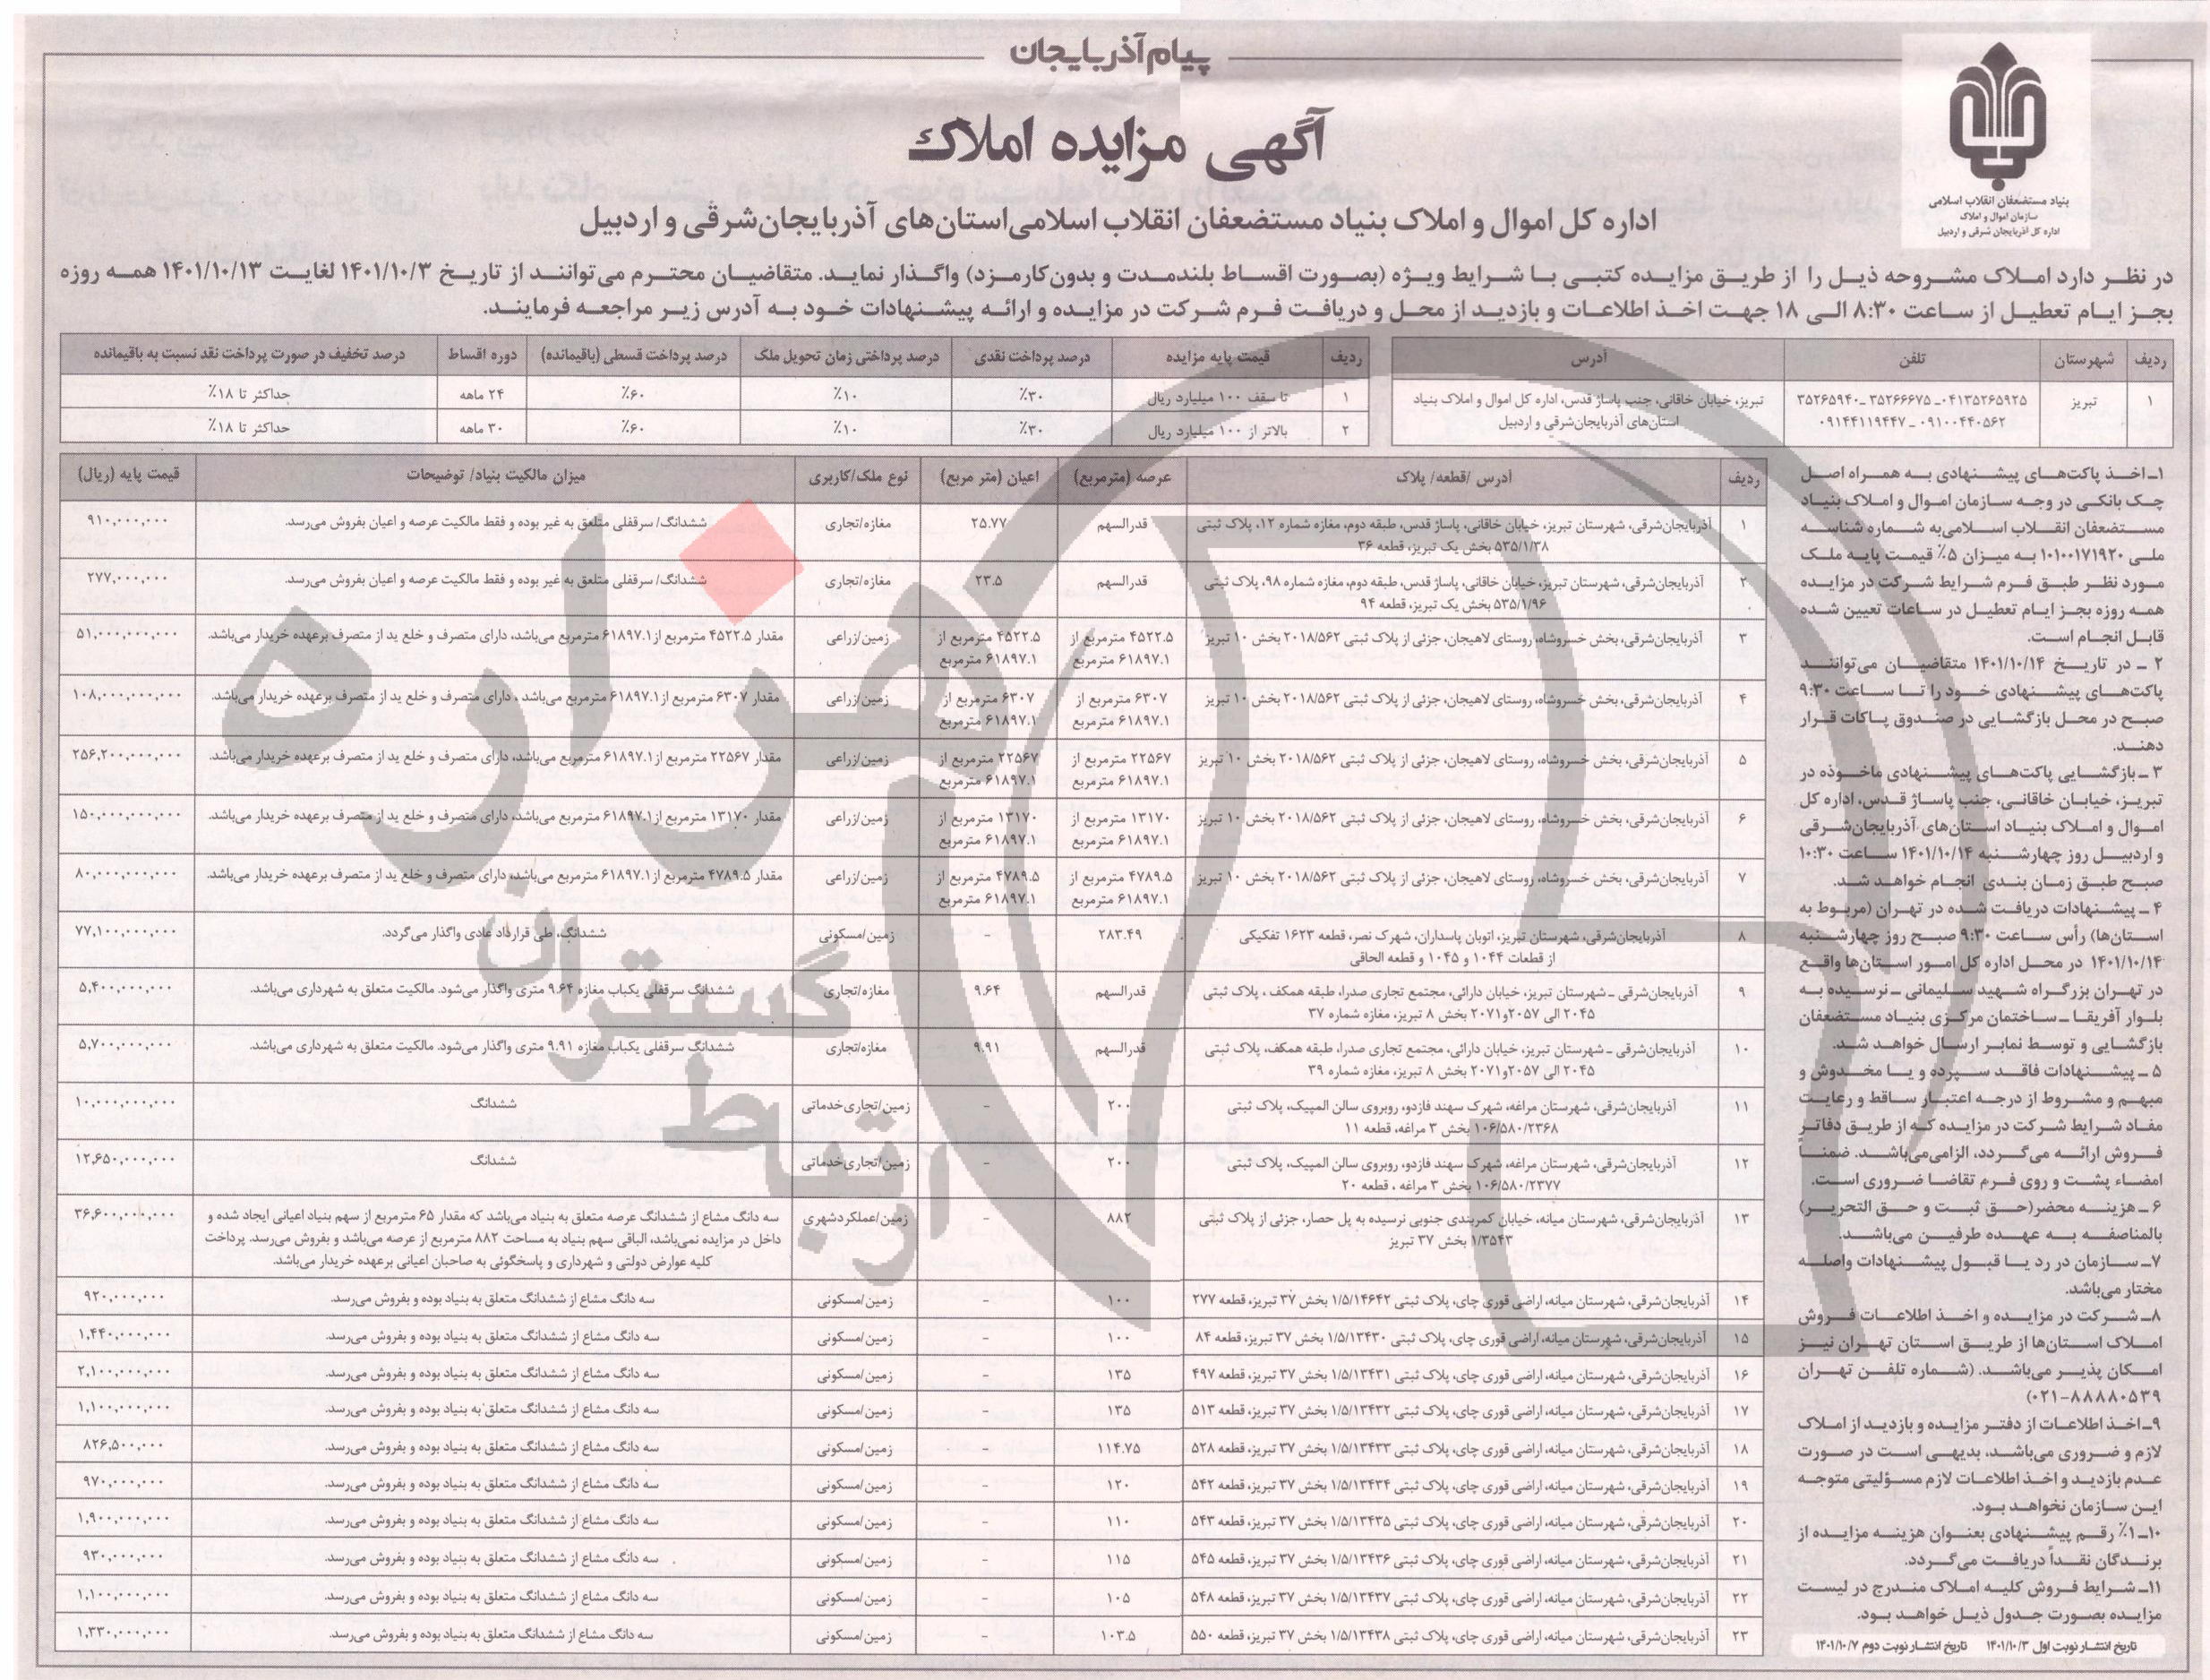 پیام آذربایجان
بنیاد مستضعفان انقلاب اسلامی
سازمان اموال و املاک
اداره کل آذربایجان شرقی و اردبیل
آگهی مزایده املاک
اداره کل اموال و املاک بنیاد مستضعفان انقلاب اسلامی‌استان‌های آذربایجان‌شرقی و اردبیل
در نظر دارد املاک مشروحه ذیل را از طریق مزایده کتبی با شرایط ویژه (بصورت اقساط بلندمدت و بدون‌کارمزد) واگذار نماید. متقاضیان محترم می‌توانند از تاریخ ۱۴۰۱/۱۰/۳ لغایت ۱۴۰۱/۱۰/۱۳ همه روزه
بجز ایام تعطیل از ساعت ۸:۳۰ الی ۱۸ جهت اخذ اطلاعات و بازدید از محل و دریافت فرم شرکت در مزایده و ارائه پیشنهادات خود به آدرس زیر مراجعه فرمایند.
ردیف شهرستان تلفن آدرس
۱ تبریز ۰۴۱۳۵۲۶۵۹۲۵ـ ۳۵۲۶۶۶۷۵ ـ۳۵۲۶۵۹۴۰ تبریز، خیابان خاقانی، جنب پاساژ قدس، اداره کل اموال و املاک بنیاد
۰۹۱۰۰۴۴۰۵۶۲ ـ ۰۹۱۴۴۱۱۹۴۴۷ استان‌های آذربایجان‌شرقی و اردبیل
ردیف قیمت پایه مزایده درصد پرداخت نقدی درصد پرداختی زمان تحویل ملک درصد پرداخت قسطی (باقیمانده) دوره اقساط درصد تخفیف در صورت پرداخت نقد نسبت به باقیمانده
۱ تا سقف ۱۰۰ میلیارد ریال ۳۰٪ ۱۰٪ ۶۰٪ ۲۴ ماهه حداکثر تا ۱۸٪
۲ بالاتر از ۱۰۰ میلیارد ریال ۳۰٪ ۱۰٪ ۶۰٪ ۳۰ ماهه حداکثر تا ۱۸٪
۱ـ اخذ پاکت‌های پیشنهادی به همراه اصل
چک بانکی در وجه سازمان اموال و املاک بنیاد
مستضعفان انقلاب اسلامی‌به شماره شناسه
ملی ۱۰۱۰۰۱۷۱۹۲۰ به میزان ۵٪ قیمت پایه ملک
مورد نظر طبق فرم شرایط شرکت در مزایده
همه روزه بجز ایام تعطیل در ساعات تعیین شده
قابل انجام است.
۲ ـ در تاریخ ۱۴۰۱/۱۰/۱۴ متقاضیان می‌توانند
پاکت‌های پیشنهادی خود را تا ساعت ۹:۳۰
صبح در محل بازگشایی در صندوق پاکات قرار
دهند.
۳ ـ بازگشایی پاکت‌های پیشنهادی ماخوذه در
تبریز، خیابان خاقانی، جنب پاساژ قدس، اداره کل
اموال و املاک بنیاد استان‌های آذربایجان‌شرقی
و اردبیل روز چهارشنبه ۱۴۰۱/۱۰/۱۴ ساعت ۱۰:۳۰
صبح طبق زمان بندی انجام خواهد شد.
۴ ـ پیشنهادات دریافت شده در تهران (مربوط به
استان‌ها) رأس ساعت ۹:۳۰ صبح روز چهارشنبه
۱۴۰۱/۱۰/۱۴ در محل اداره کل امور استان‌ها واقع
در تهران بزرگراه شهید سلیمانی ـ نرسیده به
بلوار آفریقا ـ ساختمان مرکزی بنیاد مستضعفان
بازگشایی و توسط نمابر ارسال خواهد شد.
۵ ـ پیشنهادات فاقد سپرده و یا مخدوش و
مبهم و مشروط از درجه اعتبار ساقط و رعایت
مفاد شرایط شرکت در مزایده که از طریق دفاتر
فروش ارائه می‌گردد، الزامی‌می‌باشد. ضمناً
امضاء پشت و روی فرم تقاضا ضروری است.
۶ ـ هزینه محضر(حق ثبت و حق التحریر)
بالمناصفه به عهده طرفین می‌باشد.
۷ـ سازمان در رد یا قبول پیشنهادات واصله
مختار می‌باشد.
۸ـ شرکت در مزایده و اخذ اطلاعات فروش
املاک استان‌ها از طریق استان تهران نیز
امکان پذیر می‌باشد. (شماره تلفن تهران
۸۸۸۸۰۵۳۹-۰۲۱)
۹ـ اخذ اطلاعات از دفتر مزایده و بازدید از املاک
لازم و ضروری می‌باشد، بدیهی است در صورت
عدم بازدید و اخذ اطلاعات لازم مسؤلیتی متوجه
این سازمان نخواهد بود.
۱۰ـ ۱٪ رقم پیشنهادی بعنوان هزینه مزایده از
برندگان نقداً دریافت می‌گردد.
۱۱ـ شرایط فروش کلیه املاک مندرج در لیست
مزایده بصورت جدول ذیل خواهد بود.
تاریخ انتشار نوبت اول ۱۴۰۱/۱۰/۳ تاریخ انتشار نوبت دوم ۱۴۰۱/۱۰/۷
ردیف آدرس /قطعه/ پلاک عرصه (مترمربع) اعیان (متر مربع) نوع ملک/کاربری میزان مالکیت بنیاد/ توضیحات قیمت پایه (ریال)
۱ آذربایجان‌شرقی، شهرستان تبریز، خیابان خاقانی، پاساژ قدس، طبقه دوم، مغازه شماره ۱۲، پلاک ثبتی قدرالسهم ۲۵.۷۷ مغازه/تجاری ششدانگ/ سرقفلی متلعق به غیر بوده و فقط مالکیت عرصه و اعیان بفروش می‌رسد. ۹۱۰,۰۰۰,۰۰۰
۵۳۵/۱/۳۸ بخش یک تبریز، قطعه ۳۶
۲ آذربایجان‌شرقی، شهرستان تبریز، خیابان خاقانی، پاساژ قدس، طبقه دوم، مغازه شماره ۹۸، پلاک ثبتی قدرالسهم ۲۳.۵ مغازه/تجاری ششدانگ/ سرقفلی متلعق به غیر بوده و فقط مالکیت عرصه و اعیان بفروش می‌رسد. ۲۷۷,۰۰۰,۰۰۰
۵۳۵/۱/۹۶ بخش یک تبریز، قطعه ۹۴
۳ آذربایجان‌شرقی، بخش خسروشاه، روستای لاهیجان، جزئی از پلاک ثبتی ۲۰۱۸/۵۶۲ بخش ۱۰ تبریز ۴۵۲۲.۵ مترمربع از ۴۵۲۲.۵ مترمربع از زمین/زراعی مقدار ۴۵۲۲.۵ مترمربع از ۶۱۸۹۷.۱ مترمربع می‌باشد، دارای متصرف و خلع ید از متصرف برعهده خریدار می‌باشد. ۵۱,۰۰۰,۰۰۰,۰۰۰
۶۱۸۹۷.۱ مترمربع ۶۱۸۹۷.۱ مترمربع
۴ آذربایجان‌شرقی، بخش خسروشاه، روستای لاهیجان، جزئی از پلاک ثبتی ۲۰۱۸/۵۶۲ بخش ۱۰ تبریز ۶۳۰۷ مترمربع از ۶۳۰۷ مترمربع از زمین/زراعی مقدار ۶۳۰۷ مترمربع از ۶۱۸۹۷.۱ مترمربع می‌باشد ، دارای متصرف و خلع ید از متصرف برعهده خریدار می‌باشد. ۱۰۸,۰۰۰,۰۰۰,۰۰۰
۶۱۸۹۷.۱ مترمربع ۶۱۸۹۷.۱ مترمربع
۵ آذربایجان‌شرقی، بخش خسروشاه، روستای لاهیجان، جزئی از پلاک ثبتی ۲۰۱۸/۵۶۲ بخش ۱۰ تبریز ۲۲۵۶۷ مترمربع از ۲۲۵۶۷ مترمربع از زمین/زراعی مقدار ۲۲۵۶۷ مترمربع از ۶۱۸۹۷.۱ مترمربع می‌باشد، دارای متصرف و خلع ید از متصرف برعهده خریدار می‌باشد. ۲۵۶,۲۰۰,۰۰۰,۰۰۰
۶۱۸۹۷.۱ مترمربع ۶۱۸۹۷.۱ مترمربع
۶ آذربایجان‌شرقی، بخش خسروشاه، روستای لاهیجان، جزئی از پلاک ثبتی ۲۰۱۸/۵۶۲ بخش ۱۰ تبریز ۱۳۱۷۰ مترمربع از ۱۳۱۷۰ مترمربع از زمین/زراعی مقدار ۱۳۱۷۰ مترمربع از ۶۱۸۹۷.۱ مترمربع می‌باشد، دارای متصرف و خلع ید از متصرف برعهده خریدار می‌باشد. ۱۵۰,۰۰۰,۰۰۰,۰۰۰
۶۱۸۹۷.۱ مترمربع ۶۱۸۹۷.۱ مترمربع
۷ آذربایجان‌شرقی، بخش خسروشاه، روستای لاهیجان، جزئی از پلاک ثبتی ۲۰۱۸/۵۶۲ بخش ۱۰ تبریز ۴۷۸۹.۵ مترمربع از ۴۷۸۹.۵ مترمربع از زمین/زراعی مقدار ۴۷۸۹.۵ مترمربع از ۶۱۸۹۷.۱ مترمربع می‌باشد، دارای متصرف و خلع ید از متصرف برعهده خریدار می‌باشد. ۸۰,۰۰۰,۰۰۰,۰۰۰
۶۱۸۹۷.۱ مترمربع ۶۱۸۹۷.۱ مترمربع
۸ آذربایجان‌شرقی، شهرستان تبریز، اتوبان پاسداران، شهرک نصر، قطعه ۱۶۲۳ تفکیکی ۲۸۳.۴۹ - زمین/مسکونی ششدانگ، طی قرارداد عادی واگذار می‌گردد. ۷۷,۱۰۰,۰۰۰,۰۰۰
از قطعات ۱۰۴۴ و ۱۰۴۵ و قطعه الحاقی
۹ آذربایجان‌شرقی ـ شهرستان تبریز، خیابان دارائی، مجتمع تجاری صدرا، طبقه همکف ، پلاک ثبتی قدرالسهم ۹.۶۴ مغازه/تجاری ششدانگ سرقفلی یکباب مغازه ۹.۶۴ متری واگذار می‌شود. مالکیت متعلق به شهرداری می‌باشد. ۵,۴۰۰,۰۰۰,۰۰۰
۲۰۴۵ الی ۲۰۵۷و۲۰۷۱ بخش ۸ تبریز، مغازه شماره ۳۷
۱۰ آذربایجان‌شرقی ـ شهرستان تبریز، خیابان دارائی، مجتمع تجاری صدرا، طبقه همکف، پلاک ثبتی قدرالسهم ۹.۹۱ مغازه/تجاری ششدانگ سرقفلی یکباب مغازه ۹.۹۱ متری واگذار می‌شود. مالکیت متعلق به شهرداری می‌باشد. ۵,۷۰۰,۰۰۰,۰۰۰
۲۰۴۵ الی ۲۰۵۷و۲۰۷۱ بخش ۸ تبریز، مغازه شماره ۳۹
۱۱ آذربایجان‌شرقی، شهرستان مراغه، شهرک سهند فازدو، روبروی سالن المپیک، پلاک ثبتی ۲۰۰ - زمین/تجاری‌خدماتی ششدانگ ۱۰,۰۰۰,۰۰۰,۰۰۰
۱۰۶/۵۸۰/۲۳۶۸ بخش ۳ مراغه، قطعه ۱۱
۱۲ آذربایجان‌شرقی، شهرستان مراغه، شهرک سهند فازدو، روبروی سالن المپیک، پلاک ثبتی ۲۰۰ - زمین/تجاری‌خدماتی ششدانگ ۱۲,۶۵۰,۰۰۰,۰۰۰
۱۰۶/۵۸۰/۲۳۷۷ بخش ۳ مراغه ، قطعه ۲۰
۱۳ آذربایجان‌شرقی، شهرستان میانه، خیابان کمربندی جنوبی نرسیده به پل حصار، جزئی از پلاک ثبتی ۸۸۲ - زمین/عملکردشهری سه دانگ مشاع از ششدانگ عرصه متعلق به بنیاد می‌باشد که مقدار ۶۵ مترمربع از سهم بنیاد اعیانی ایجاد شده و ۳۶,۶۰۰,۰۰۰,۰۰۰
۱/۳۵۴۳ بخش ۳۷ تبریز داخل در مزایده نمی‌باشد، الباقی سهم بنیاد به مساحت ۸۸۲ مترمربع از عرصه می‌باشد و بفروش می‌رسد. پرداخت
کلیه عوارض دولتی و شهرداری و پاسخگوئی به صاحبان اعیانی برعهده خریدار می‌باشد.
۱۴ آذربایجان‌شرقی، شهرستان میانه، اراضی قوری چای، پلاک ثبتی ۱/۵/۱۴۶۴۲ بخش ۳۷ تبریز، قطعه ۲۷۷ ۱۰۰ - زمین/مسکونی سه دانگ مشاع از ششدانگ متعلق به بنیاد بوده و بفروش می‌رسد. ۹۲۰,۰۰۰,۰۰۰
۱۵ آذربایجان‌شرقی، شهرستان میانه، اراضی قوری چای، پلاک ثبتی ۱/۵/۱۳۴۳۰ بخش ۳۷ تبریز، قطعه ۸۴ ۱۰۰ - زمین/مسکونی سه دانگ مشاع از ششدانگ متعلق به بنیاد بوده و بفروش می‌رسد. ۱,۴۴۰,۰۰۰,۰۰۰
۱۶ آذربایجان‌شرقی، شهرستان میانه، اراضی قوری چای، پلاک ثبتی ۱/۵/۱۳۴۳۱ بخش ۳۷ تبریز، قطعه ۴۹۷ ۱۳۵ - زمین/مسکونی سه دانگ مشاع از ششدانگ متعلق به بنیاد بوده و بفروش می‌رسد. ۲,۱۰۰,۰۰۰,۰۰۰
۱۷ آذربایجان‌شرقی، شهرستان میانه، اراضی قوری چای، پلاک ثبتی ۱/۵/۱۳۴۳۲ بخش ۳۷ تبریز، قطعه ۵۱۳ ۱۳۵ - زمین/مسکونی سه دانگ مشاع از ششدانگ متعلق به بنیاد بوده و بفروش می‌رسد. ۱,۱۰۰,۰۰۰,۰۰۰
۱۸ آذربایجان‌شرقی، شهرستان میانه، اراضی قوری چای، پلاک ثبتی ۱/۵/۱۳۴۳۳ بخش ۳۷ تبریز، قطعه ۵۲۸ ۱۱۴.۷۵ - زمین/مسکونی سه دانگ مشاع از ششدانگ متعلق به بنیاد بوده و بفروش می‌رسد. ۸۲۶,۵۰۰,۰۰۰
۱۹ آذربایجان‌شرقی، شهرستان میانه، اراضی قوری چای، پلاک ثبتی ۱/۵/۱۳۴۳۴ بخش ۳۷ تبریز، قطعه ۵۴۲ ۱۲۰ - زمین/مسکونی سه دانگ مشاع از ششدانگ متعلق به بنیاد بوده و بفروش می‌رسد. ۹۷۰,۰۰۰,۰۰۰
۲۰ آذربایجان‌شرقی، شهرستان میانه، اراضی قوری چای، پلاک ثبتی ۱/۵/۱۳۴۳۵ بخش ۳۷ تبریز، قطعه ۵۴۳ ۱۱۰ - زمین/مسکونی سه دانگ مشاع از ششدانگ متعلق به بنیاد بوده و بفروش می‌رسد. ۱,۹۰۰,۰۰۰,۰۰۰
۲۱ آذربایجان‌شرقی، شهرستان میانه، اراضی قوری چای، پلاک ثبتی ۱/۵/۱۳۴۳۶ بخش ۳۷ تبریز، قطعه ۵۴۵ ۱۱۵ - زمین/مسکونی سه دانگ مشاع از ششدانگ متعلق به بنیاد بوده و بفروش می‌رسد. ۹۳۰,۰۰۰,۰۰۰
۲۲ آذربایجان‌شرقی، شهرستان میانه، اراضی قوری چای، پلاک ثبتی ۱/۵/۱۳۴۳۷ بخش ۳۷ تبریز، قطعه ۵۴۸ ۱۰۵ - زمین/مسکونی سه دانگ مشاع از ششدانگ متعلق به بنیاد بوده و بفروش می‌رسد. ۱,۱۰۰,۰۰۰,۰۰۰
۲۳ آذربایجان‌شرقی، شهرستان میانه، اراضی قوری چای، پلاک ثبتی ۱/۵/۱۳۴۳۸ بخش ۳۷ تبریز، قطعه ۵۵۰ ۱۰۳.۵ - زمین/مسکونی سه دانگ مشاع از ششدانگ متعلق به بنیاد بوده و بفروش می‌رسد. ۱,۳۳۰,۰۰۰,۰۰۰
هزاره
گستران
ارتباط